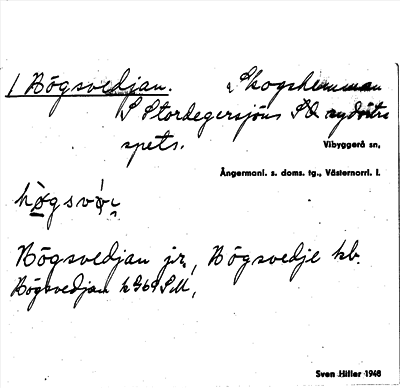 / Bögsvedjan. Skogshemman
S Stordegersjöns SO
spets. Vibyggerå sn,
Ångermanl. s. doms. tg., Västernorrl. l.
Bögsvedjan jr., Bögsvedje kb.
Bögsvedjan
Sven Hiller 1948